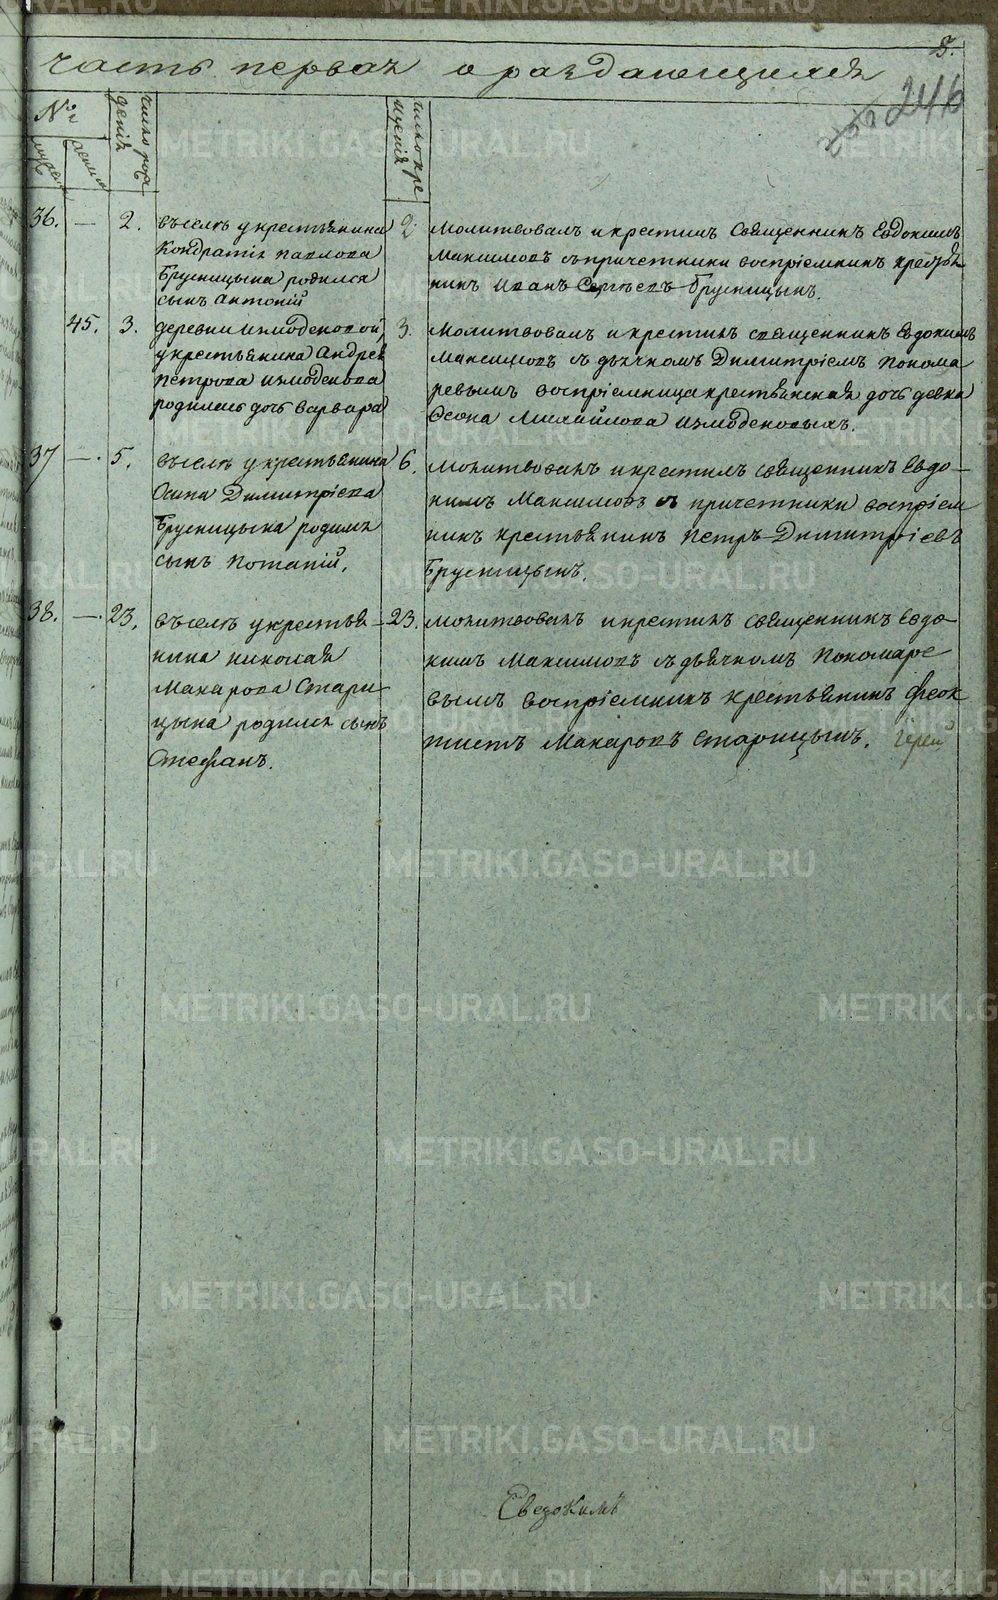 8.
часть первая о раждающихся
246
№
число рож
дения
число кре
щения
мужеск
женска
36. — 2. Въ селѣ у крестьянина
Кондратія Павлова
Брусницына родился
сынъ Антоній
2 Молитвовалъ и крестилъ священникъ Евдокимъ
Максимовъ съ причетники воспріемникъ крестья
нинъ Иванъ Сергѣевъ Брусницынъ.
45. 3. деревни Измоденовой,
у крестьянина Андрея
Петрова Измоденова
родилась дочь Варвара
3. Молитвовалъ и крестилъ священникъ Евдокимъ
Максимовъ съ дьячкомъ Димитріемъ Понома
ревымъ воспріемница крестьянская дочь девка
Михайлова Измоденовыхъ.
37 —. 5. въ селѣ у крестьянина
Осипа Димитріева
Брусницына родился
сынъ Потапій.
6. Молитвовалъ и крестилъ священникъ Евдо–
кимъ Максимовъ съ причетники воспріем
никъ крестьянинъ Петръ Димитріевъ
Брусницынъ.
38. —. 23. въ селѣ у крестья–
нина Николая
Макарова Стари–
цына родился сынъ
Стефанъ.
23. Молитвовалъ и крестилъ священникъ Евдо–
кимъ Максимовъ съ дьячкомъ Пономаре
вымъ воспріемникъ крестьянинъ Феок
тистъ Макаровъ Старицынъ. Іерей
Евдокимъ
METRIKI.GASO-URAL.RU